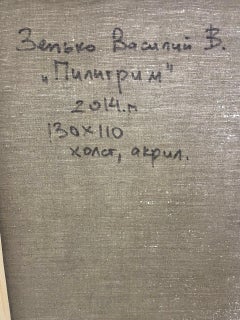 Зенько Василий В.
„Пилигрим"
2014.г
130х110
холст, акрил.